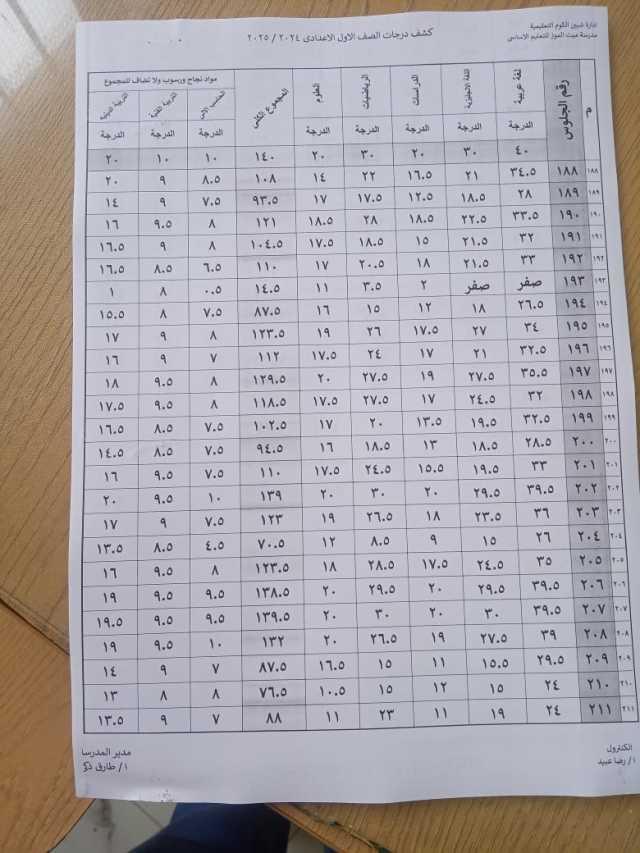 ادارة شبين الكوم التعليمية
مدرسة ميت الموز للتعليم الاساسى
كشف درجات الصف الاول الاعدادى ٢٠٢٤ / ٢٠٢٥
م رقم الجلوس لغة عربية اللغة الانجليزية الدراسات الرياضيات العلوم المجموع الكلى مواد نجاح ورسوب ولا تضاف للمجموع
الحاسب الالى التربية الفنية التربية الدينية
الدرجة الدرجة الدرجة الدرجة الدرجة الدرجة الدرجة الدرجة
٤٠ ٣٠ ٢٠ ٣٠ ٢٠ ١٤٠ ١٠ ١٠ ٢٠
١٨٨ ١٨٨ ٣٤.٥ ٢١ ١٦.٥ ٢٢ ١٤ ١٠٨ ٨.٥ ٩ ٢٠
١٨٩ ١٨٩ ٢٨ ١٨.٥ ١٢.٥ ١٧.٥ ١٧ ٩٣.٥ ٧.٥ ٩ ١٤
١٩٠ ١٩٠ ٣٣.٥ ٢٢.٥ ١٨.٥ ٢٨ ١٨.٥ ١٢١ ٨ ٩.٥ ١٦
١٩١ ١٩١ ٣٢ ٢١.٥ ١٥ ١٨.٥ ١٧.٥ ١٠٤.٥ ٨ ٩ ١٦.٥
١٩٢ ١٩٢ ٣٣ ٢١.٥ ١٨ ٢٠.٥ ١٧ ١١٠ ٦.٥ ٨.٥ ١٦.٥
١٩٣ ١٩٣ صفر صفر ٢ ٣.٥ ١١ ١٤.٥ ٠.٥ ٨ ١
١٩٤ ١٩٤ ٢٦.٥ ١٨ ١٢ ١٥ ١٦ ٨٧.٥ ٧.٥ ٨ ١٥.٥
١٩٥ ١٩٥ ٣٤ ٢٧ ١٧.٥ ٢٦ ١٩ ١٢٣.٥ ٨ ٩ ١٧
١٩٦ ١٩٦ ٣٢.٥ ٢١ ١٧ ٢٤ ١٧.٥ ١١٢ ٧ ٩ ١٦
١٩٧ ١٩٧ ٣٥.٥ ٢٧.٥ ١٩ ٢٧.٥ ٢٠ ١٢٩.٥ ٨ ٩.٥ ١٨
١٩٨ ١٩٨ ٣٢ ٢٤.٥ ١٧ ٢٧.٥ ١٧.٥ ١١٨.٥ ٨ ٩.٥ ١٧.٥
١٩٩ ١٩٩ ٣٢.٥ ١٩.٥ ١٣.٥ ٢٠ ١٧ ١٠٢.٥ ٧.٥ ٨.٥ ١٦.٥
٢٠٠ ٢٠٠ ٢٨.٥ ١٨.٥ ١٣ ١٨.٥ ١٦ ٩٤.٥ ٧.٥ ٨.٥ ١٤.٥
٢٠١ ٢٠١ ٣٣ ١٩.٥ ١٥.٥ ٢٤.٥ ١٧.٥ ١١٠ ٧.٥ ٩.٥ ١٦
٢٠٢ ٢٠٢ ٣٩.٥ ٢٩.٥ ٢٠ ٣٠ ٢٠ ١٣٩ ١٠ ٩.٥ ٢٠
٢٠٣ ٢٠٣ ٣٦ ٢٣.٥ ١٨ ٢٦.٥ ١٩ ١٢٣ ٧.٥ ٩ ١٧
٢٠٤ ٢٠٤ ٢٦ ١٥ ٩ ٨.٥ ١٢ ٧٠.٥ ٤.٥ ٨.٥ ١٣.٥
٢٠٥ ٢٠٥ ٣٥ ٢٤.٥ ١٧.٥ ٢٨.٥ ١٨ ١٢٣.٥ ٨ ٩.٥ ١٦
٢٠٦ ٢٠٦ ٣٩.٥ ٢٩.٥ ٢٠ ٢٩.٥ ٢٠ ١٣٨.٥ ٩.٥ ٩.٥ ١٩
٢٠٧ ٢٠٧ ٣٩.٥ ٣٠ ٢٠ ٣٠ ٢٠ ١٣٩.٥ ٩.٥ ٩.٥ ١٩.٥
٢٠٨ ٢٠٨ ٣٩ ٢٧.٥ ١٩ ٢٦.٥ ٢٠ ١٣٢ ١٠ ٩.٥ ١٩
٢٠٩ ٢٠٩ ٢٩.٥ ١٥.٥ ١١ ١٥ ١٦.٥ ٨٧.٥ ٧ ٩ ١٤
٢١٠ ٢١٠ ٢٤ ١٥ ١٢ ١٥ ١٠.٥ ٧٦.٥ ٨ ٨ ١٣
٢١١ ٢١١ ٢٤ ١٩ ١١ ٢٣ ١١ ٨٨ ٧ ٩ ١٣.٥
الكنترول مدير المدرسا
ا/ رضا عبيد ا/ طارق